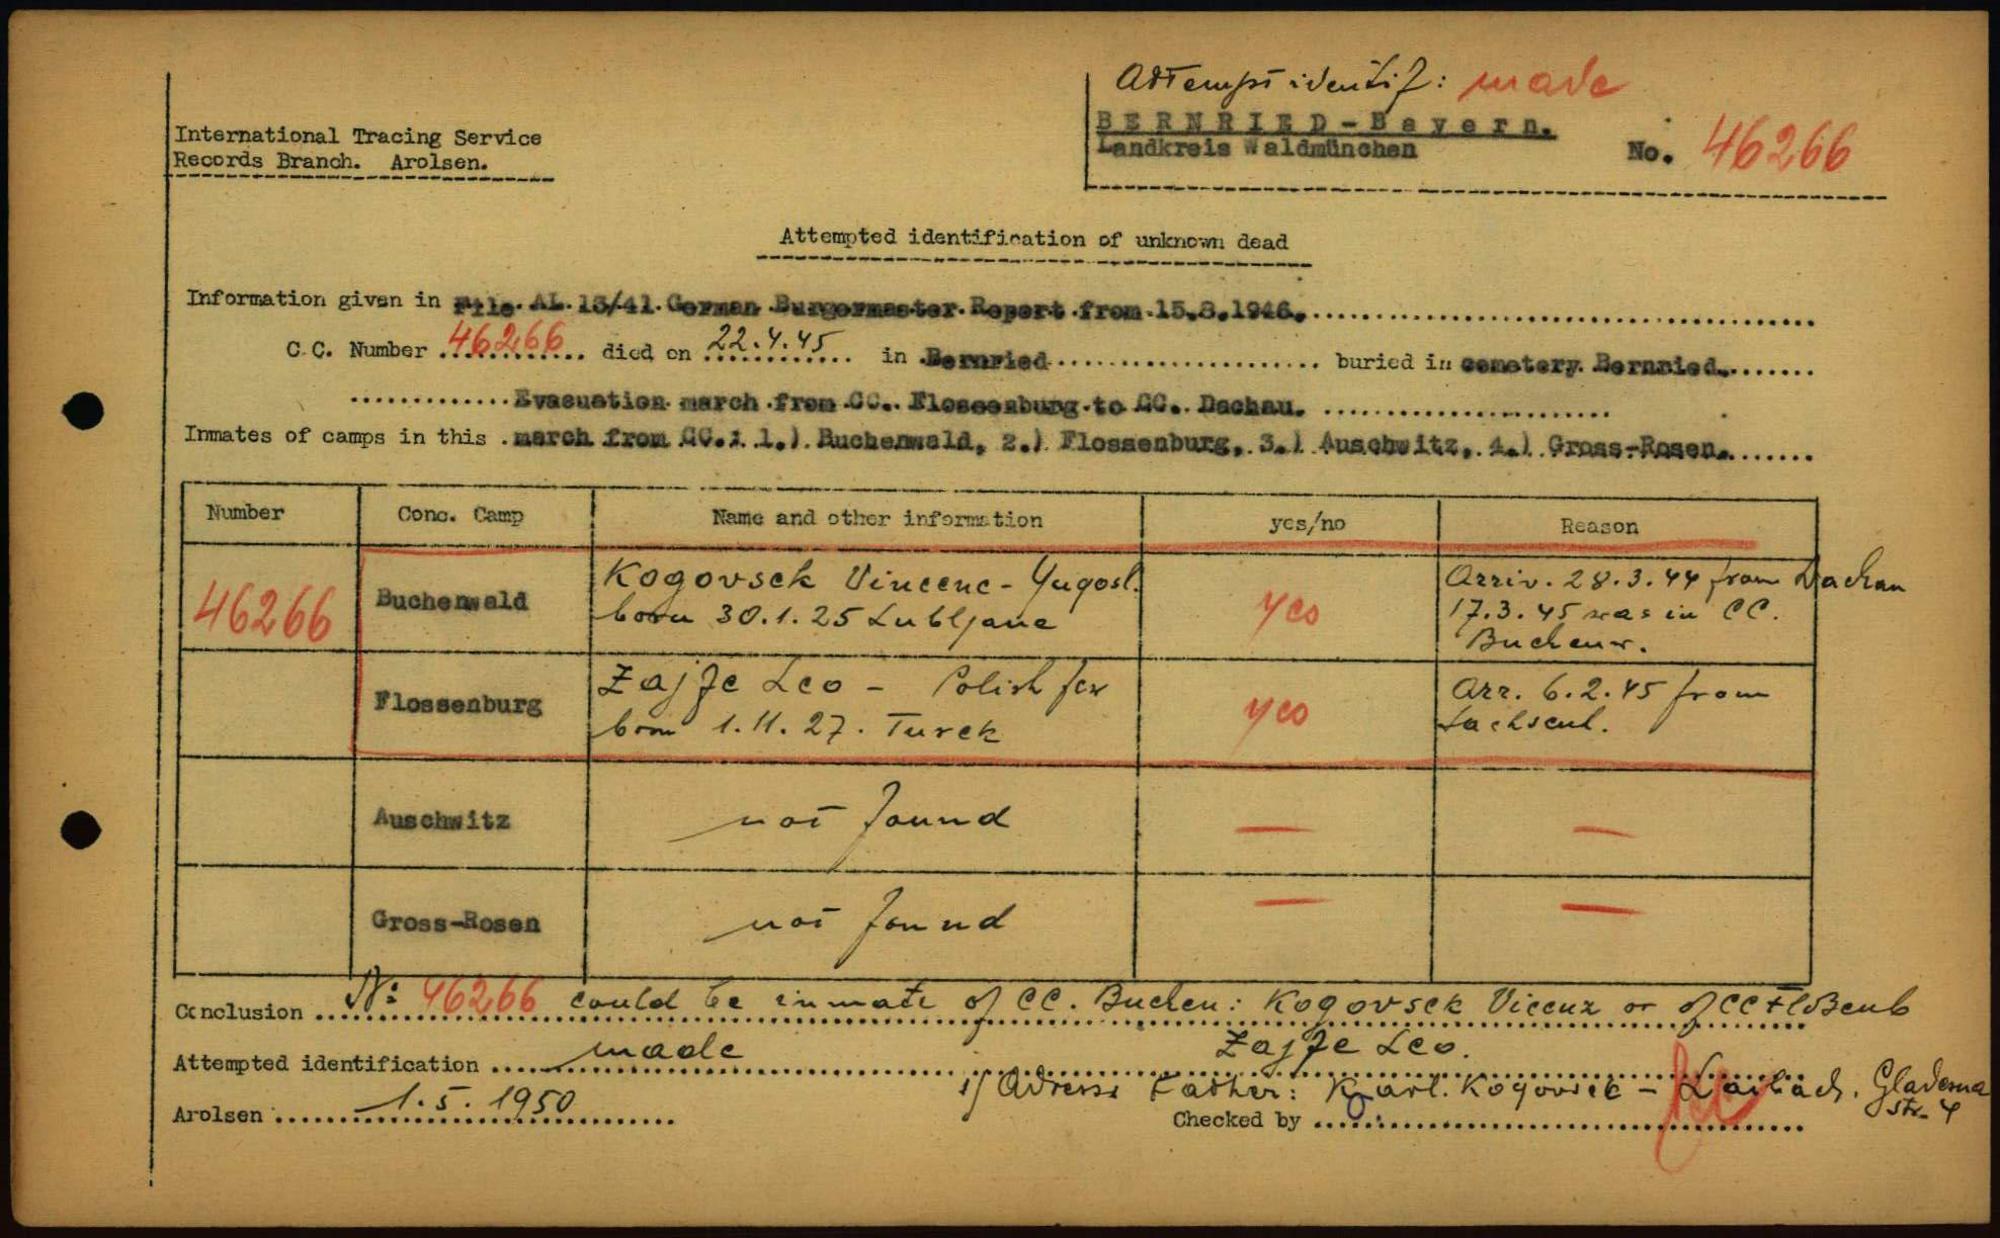 Attempt identif: made
International Tracing Service
Records Branch. Arolsen.
BERNRIED-Bayern.
Landkreis Waldmünchen
No. 46266
Attempted identification of unknown dead
Information given in File AL 13/41 German Burgermaster Report from 15.8.1946.
C.C. Number 46266 died on 22.4.45 in Bernried buried in cemetery Bernried.
Evacuation march from CC. Flossenburg to CC. Dachau.
Inmates of camps in this march from CC.: 1.) Buchenwald, 2.) Flossenburg, 3.) Auschwitz, 4.) Gross-Rosen.
Number Conc. Camp Name and other information yes/no Reason
46266 Buchenwald Kogovsek Vincenc - Yugosl. yes Arriv. 28.3.44 from Dachau
born 30.1.25 Lubljana 17.3.45 was in CC.
Buchenw.
Flossenburg Zajfe Leo - Polish Jew yes Arr. 6.2.45 from
born 1.11.27. Turek Sachsenh.
Auschwitz not found — —
Gross-Rosen not found — —
Conclusion No 46266 could be inmate of CC. Buchen: Kogovsek Vicenz or of CC Floßenb
Zajfe Leo.
Attempted identification made
1/ Adress Father: Karl Kogovsek - Laibach.
Str. 4
Arolsen 1.5.1950
Checked by